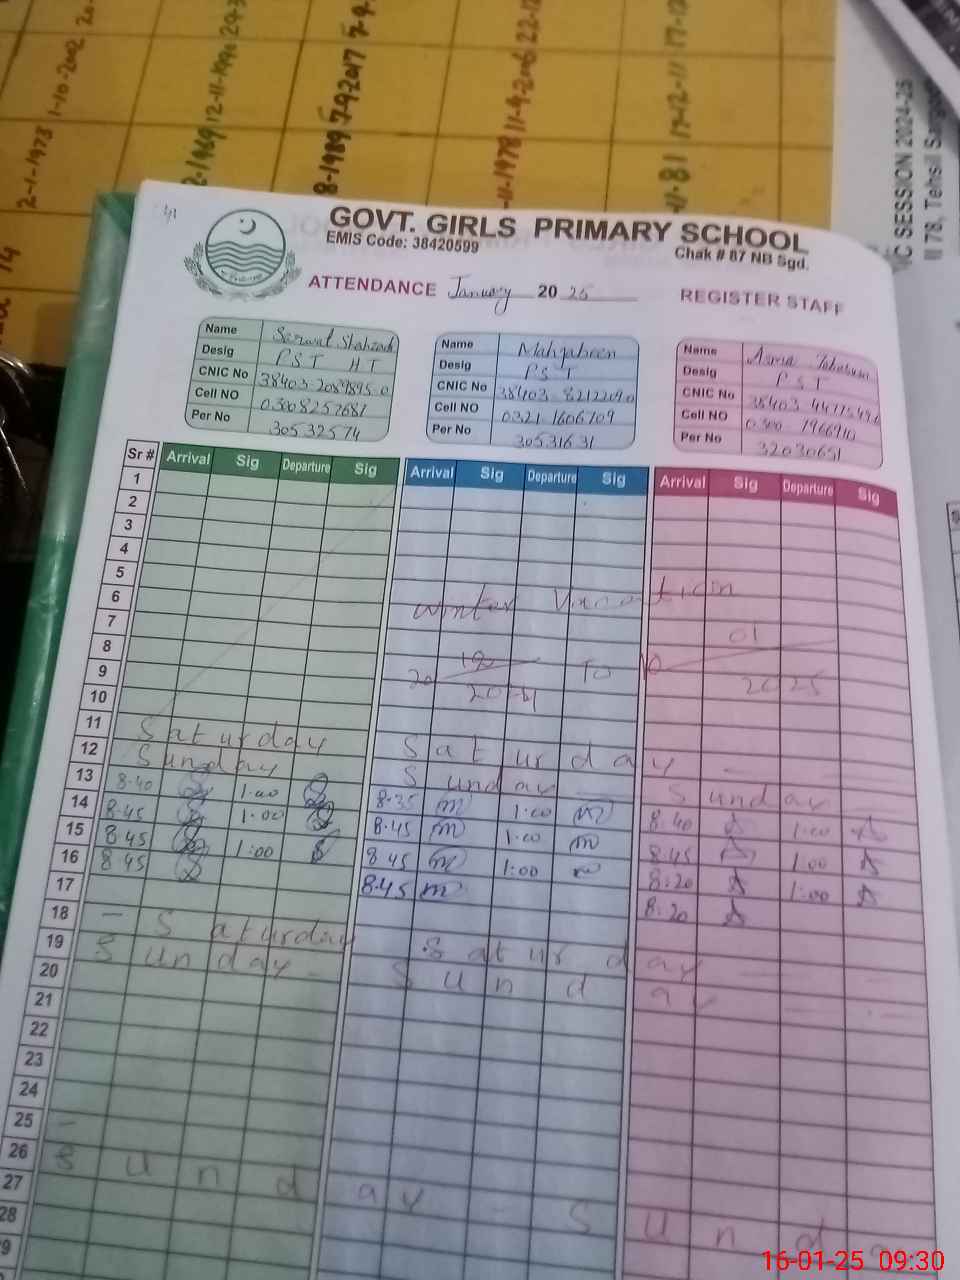 2-1-1973 1-10-2002
2-1969 12-11-1996
8-1989 7-9-2017
-11-1978 11-9-2006
11-81 17-12-11
IC SESSION 2024-25
II 78, Tehsil
GOVT. GIRLS PRIMARY SCHOOL
EMIS Code: 38420599 Chak # 87 NB Sgd.
ATTENDANCE January 2025 REGISTER STAFF
Name Name Mahjabeen Name
Desig PST HT Desig PST Desig PST
CNIC No CNIC No CNIC No
Cell NO 03008257681 Cell NO 0321 1606709 Cell NO
Per No 30532574 Per No 30531631 Per No 32030651
Sr # Arrival Sig Departure Sig Arrival Sig Departure Sig Arrival Sig Departure Sig
1
2
3
4
5
6 Winter Vacation
7
8 01
9 20 12 To 10
10 2024 2025
11 Saturday Saturday
12 Sunday Sunday Sunday
13 8.40 1.00 8.35 1:00 8:40 1:00
14 8.45 1:00 8.45 1:00 8:45 1:00
15 8.45 1:00 8.45 1:00 8:20 1:00
16 8.45 8.45 8:20
17
18 - Saturday Saturday
19 Sunday Sunday
20
21
22
23
24
25
26 Sunday Sunda
27
28
9
16-01-25 09:30